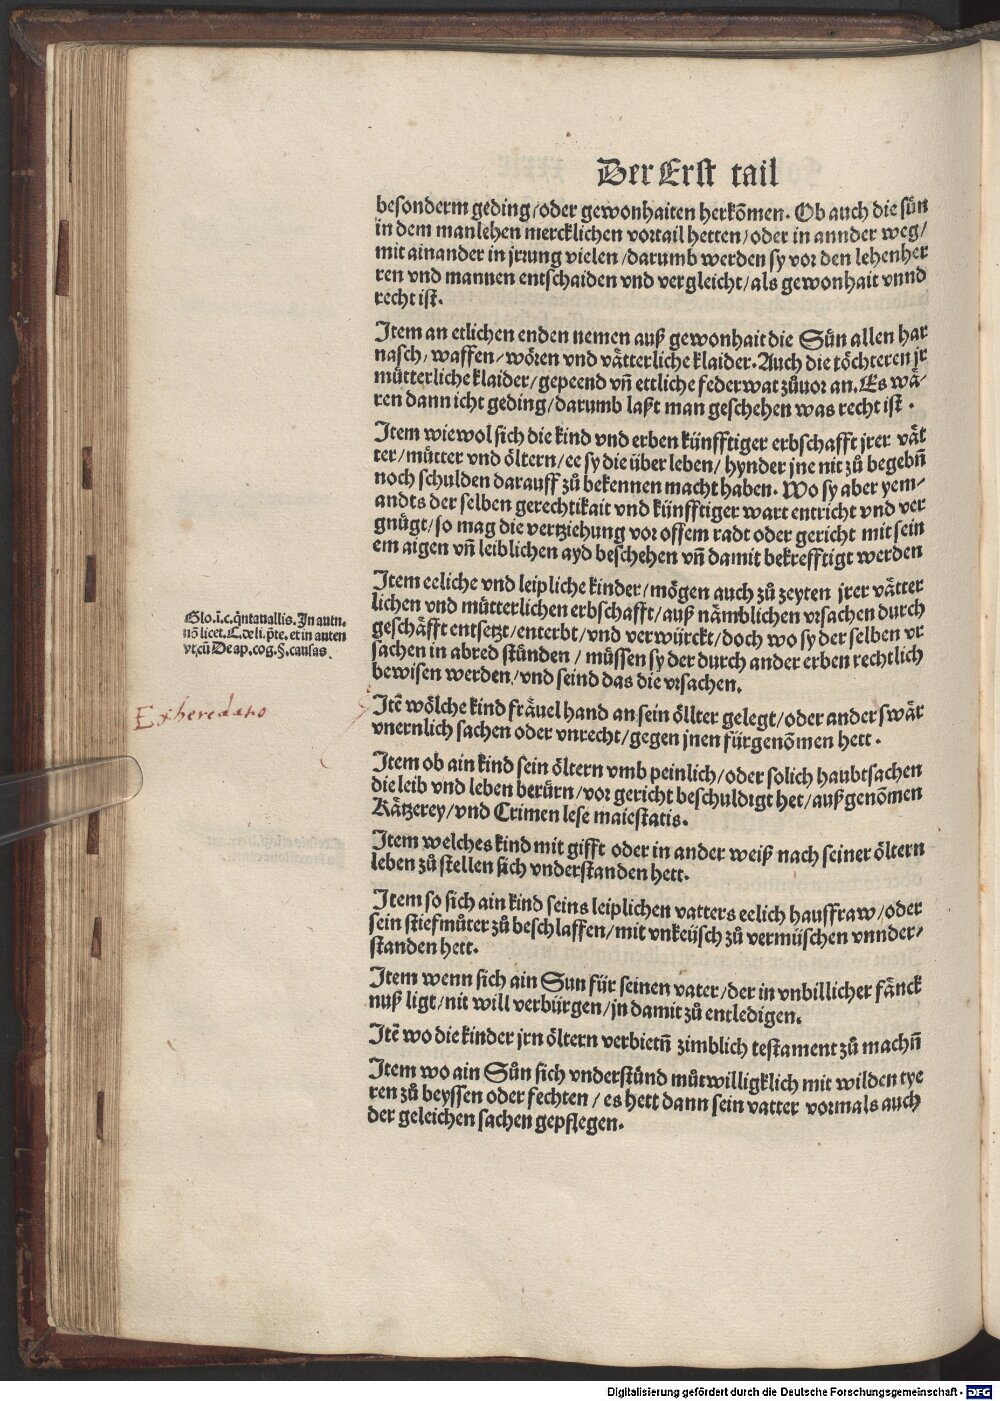 Der Erst tail
besonderm geding/oder gewonhaiten herkõmen. Ob auch die sün
in dem manlehen mercklichen vortail hetten/oder in annder weg/
mit ainander in jrrung vielen/darumb werden sy vor den lehenher
ren vnd mannen entschaiden vnd vergleicht/als gewonhait vnnd
recht ist.
Item an etlichen enden nemen auß gewonhait die Sün allen har
nasch/waffen/wören vnd vätterliche klaider. Auch die töchteren jr
mütterliche klaider/gepeend vñ ettliche federwat zůuor an. Es wä-
ren dann icht geding/darumb laßt man geschehen was recht ist.
Item wiewol sich die kind vnd erben künfftiger erbschafft jrer vät
ter/mütter vnd öltern/ee sy die über leben/hynder jne nit zů begebñ
noch schulden darauff zů bekennen macht haben. Wo sy aber yem-
andts der selben gerechtikait vnd künfftiger wart entricht vnd ver
gnügt/so mag die vertziehung vor offem radt oder gericht mit sein
em aigen vñ leiblichen ayd beschehen vñ damit bekrefftigt werden
Item eeliche vnd leipliche kinder/mögen auch zů zeyten jrer vätter
lichen vnd mütterlichen erbschafft/auß nämblichen vrsachen durch
geschäfft entsetzt/enterbt/vnd verwürckt/doch wo sy der selben vr
sachen in abred stünden/müssen sy der durch ander erben rechtlich
bewisen werden/vnd seind das die vrsachen.
Glo.i.c.q̃ntauallis. In autn.
nõ licet. C. de li. p̃te. et in auten
vt cũ De ap. cog. §. causas.
Exheredatio
Itẽ wölche kind fräuel hand an sein öllter gelegt/oder ander swär
vnernlich sachen oder vnrecht/gegen jnen fürgenõmen hett.
Item ob ain kind sein öltern vmb peinlich/oder solich haubtsachen
die leib vnd leben berürn/vor gericht beschuldigt het/außgenõmen
Kätzerey/vnd Crimen lese maiestatis.
Item welches kind mit gifft oder in ander weiß nach seiner öltern
leben zů stellen sich vnderstanden hett.
Item so sich ain kind seins leiplichen vatters eelich haussfraw/oder
sein stiefmůter zů beschlaffen/mit vnkeüsch zů vermüschen vnnder/
standen hett.
Item wenn sich ain Sun für seinen vater/der in vnbillicher fänck
nuß ligt/nit will verbürgen/jn damit zů entledigen.
Itẽ wo die kinder jrn öltern verbietñ zimblich testament zů machñ
Item wo ain Sůn sich vnderstünd můtwilligklich mit wilden tye
ren zů beyssen oder fechten/es hett dann sein vatter vormals auch
der geleichen sachen gepflegen.
Digitalisierung gefördert durch die Deutsche Forschungsgemeinschaft - DFG